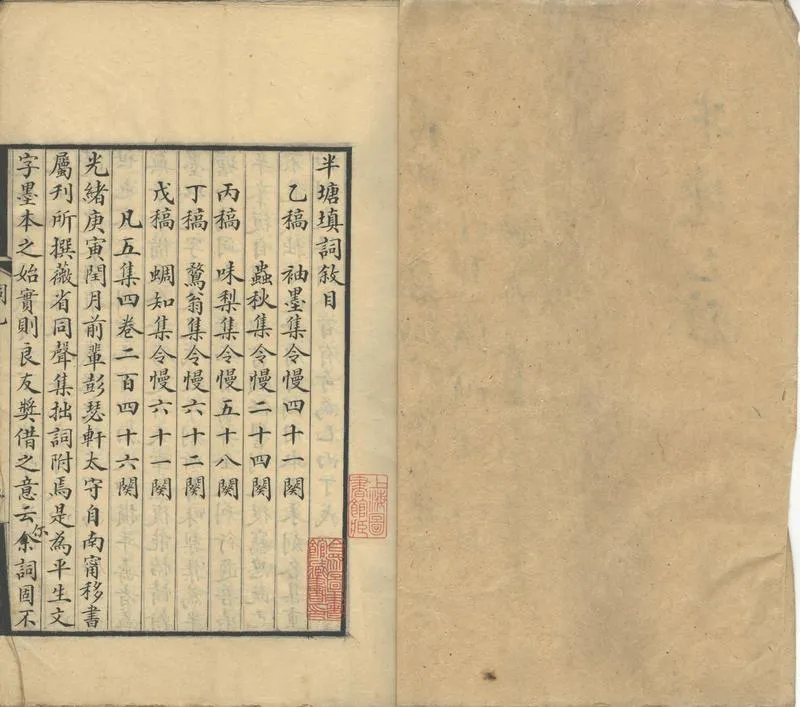 半塘填詞敘目
乙稿 袖墨集令慢四十一闋
蟲秋集令慢二十四闋
丙稿 味梨集令慢五十八闋
丁稿 鶩翁集令慢六十二闋
戊稿 蜩知集令慢六十一闋
凡五集四卷二百四十六闋
光緒庚寅閏月前輩彭瑟軒太守自南甯移書
屬刊所撰薇省同聲集拙詞附焉是為平生文
字墨本之始實則良友獎借之意云尔余詞固不
上海圖
書館藏